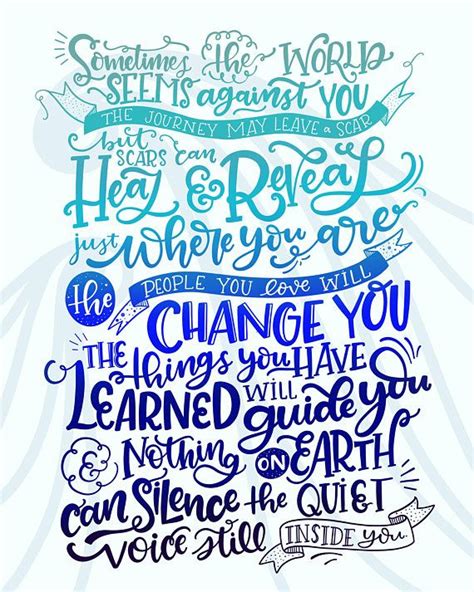 Sometimes the WORLD
SEEMS against YOU
THE JOURNEY MAY LEAVE A SCAR
but SCARS can
HEAL & REVEAL
just where you are
the PEOPLE YOU love WILL
CHANGE YOU
THE things you HAVE
LEARNED WILL guide you
& NOTHING ON EARTH
can SILENCE the QUIET
voice still INSIDE YOU.